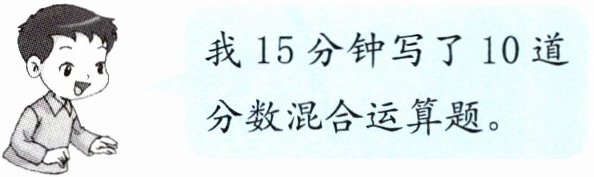 我 15 分钟写了 10 道
分数混合运算题。